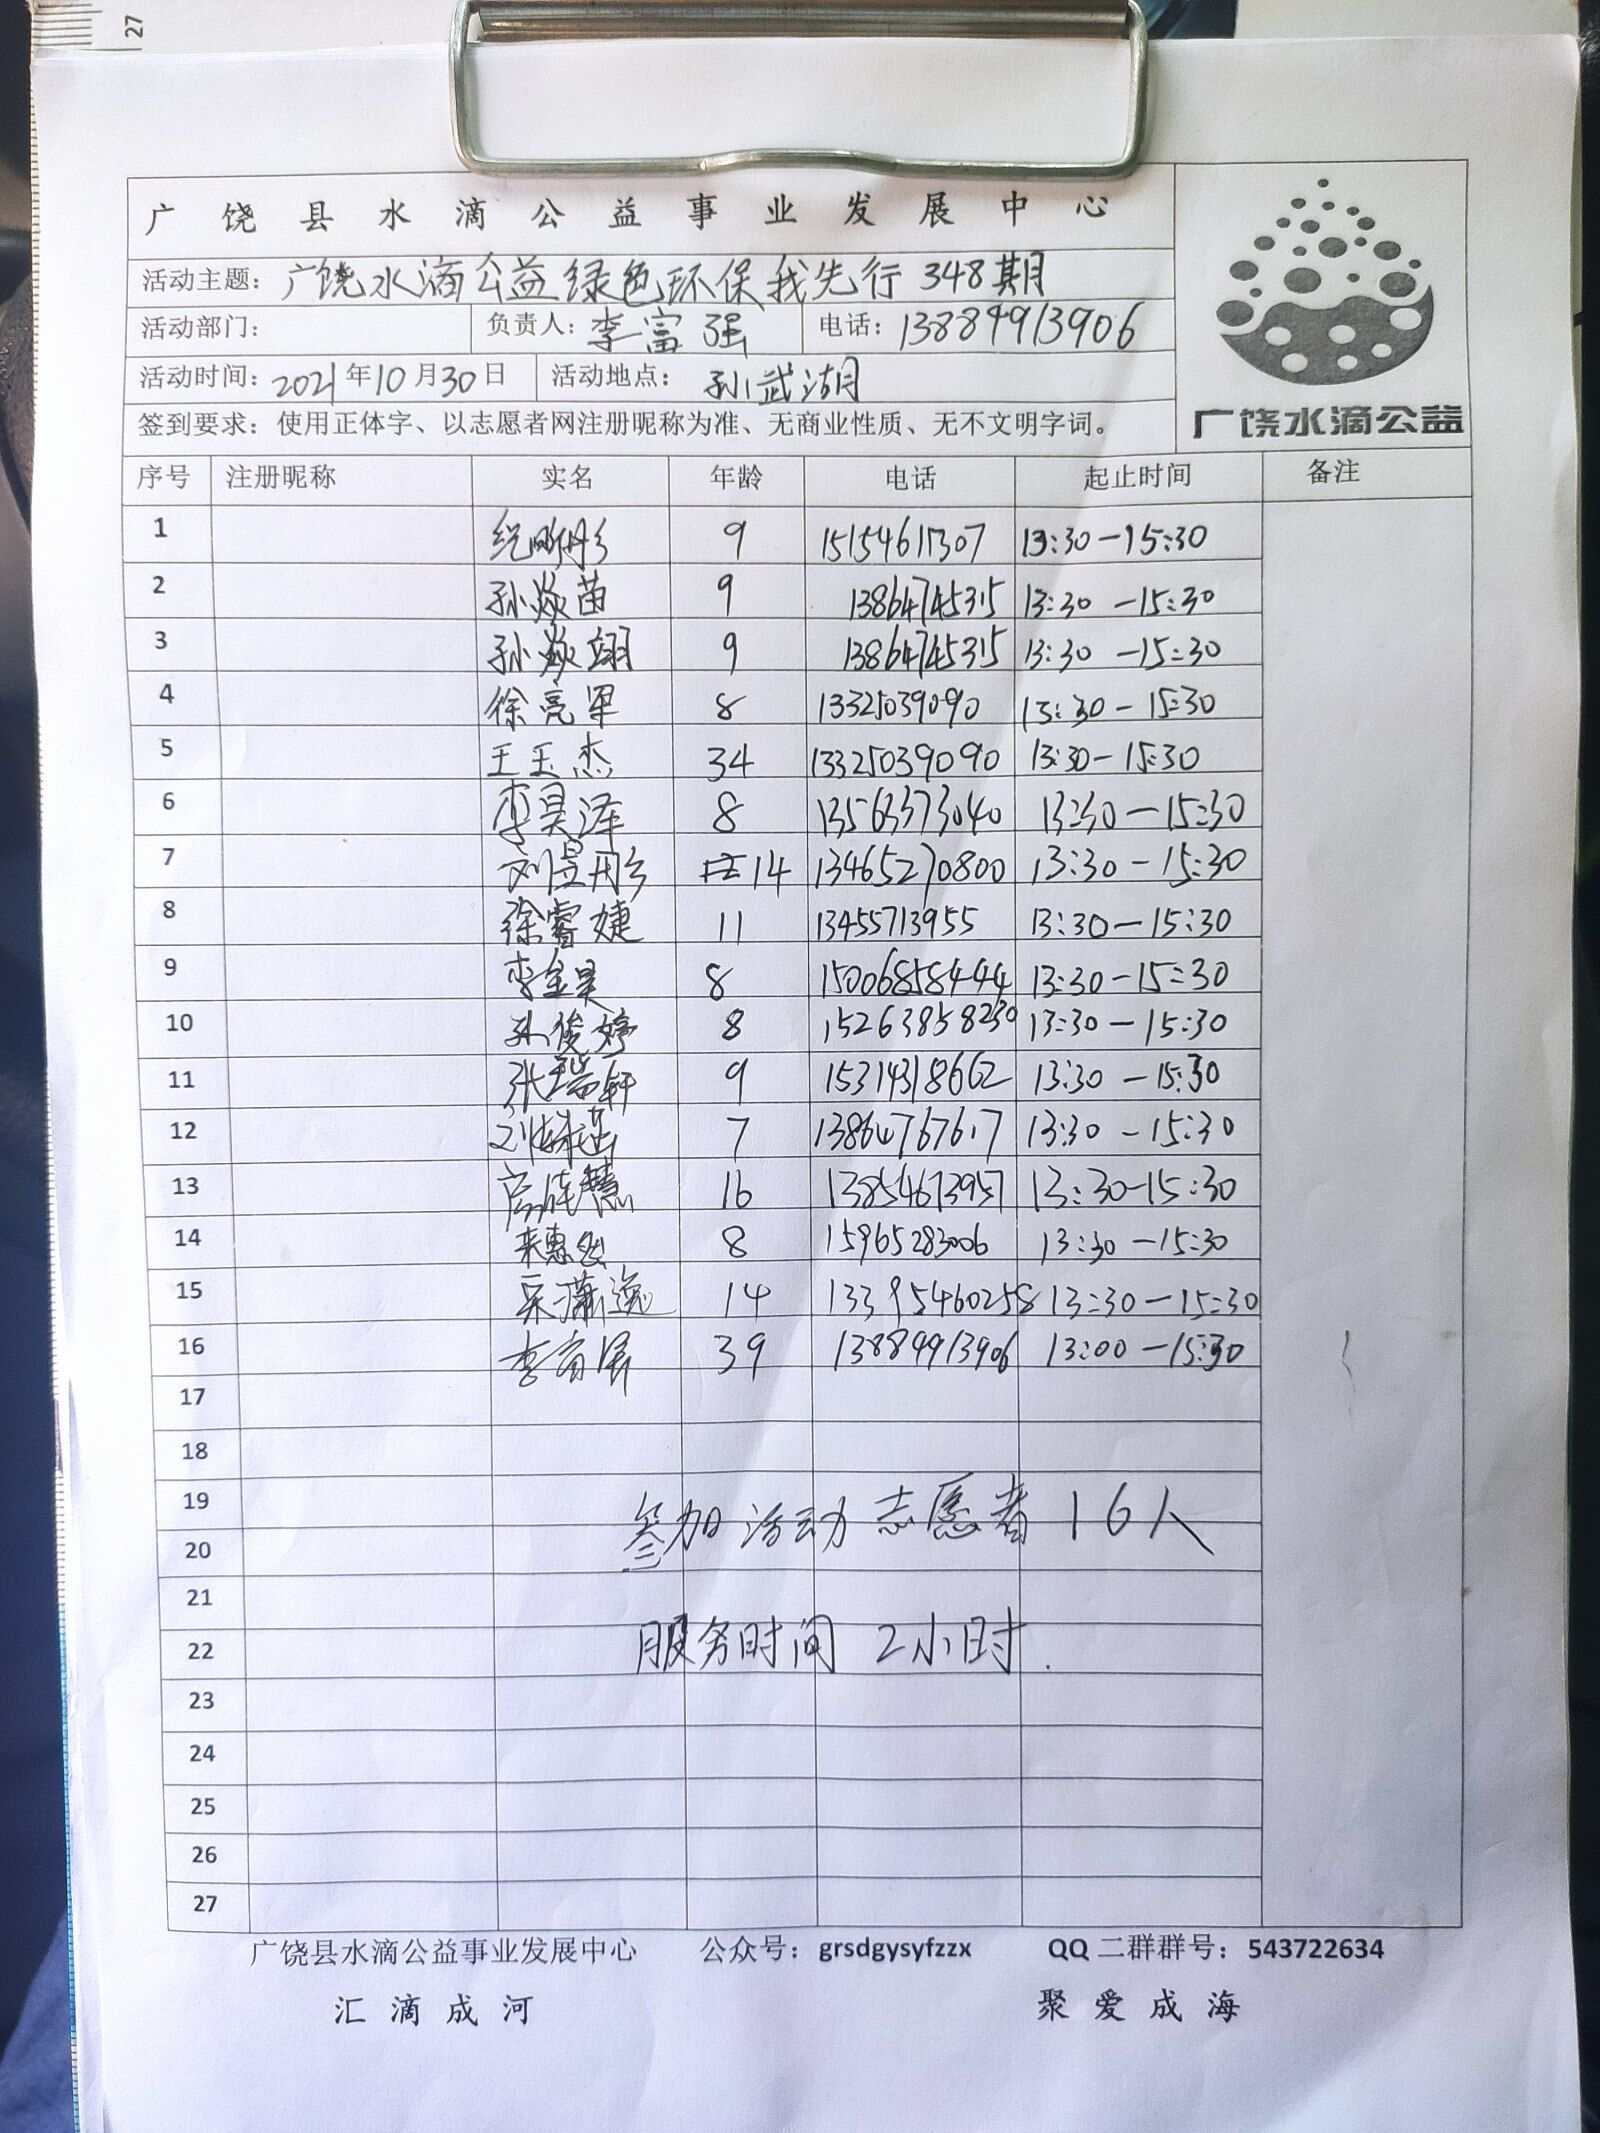 27
广饶县水滴公益事业发展中心
活动主题：广饶水滴公益绿色环保我先行348期
活动部门： 负责人：李富强 电话：13884913906
活动时间：2021年10月30日 活动地点：孙武湖
签到要求：使用正体字、以志愿者网注册昵称为准、无商业性质、无不文明字词。
广饶水滴公益
序号 注册昵称 实名 年龄 电话 起止时间 备注
1 9 15154611307 13:30-15:30
2 孙焱苗 9 13864745315 13:30-15:30
3 孙焱翊 9 13864745315 13:30-15:30
4 徐亮军 8 13325039090 13:30-15:30
5 王玉杰 34 13325039090 13:30-15:30
6 李昊泽 8 13563373040 13:30-15:30
7 刘昱彤 14 13465270800 13:30-15:30
8 徐睿婕 11 13455713955 13:30-15:30
9 李金昊 8 15006858444 13:30-15:30
10 孙俊婷 8 15263858230 13:30-15:30
11 张瑞轩 9 15314318662 13:30-15:30
12 7 13864767617 13:30-15:30
13 16 13854673957 13:30-15:30
14 8 15965283006 13:30-15:30
15 14 13395460258 13:30-15:30
16 39 13884913906 13:00-15:30
17
18
19
参加活动志愿者16人
20
21
22
服务时间2小时.
23
24
25
26
27
广饶县水滴公益事业发展中心 公众号：grsdgysyfzzx QQ二群群号：543722634
汇滴成河 聚爱成海